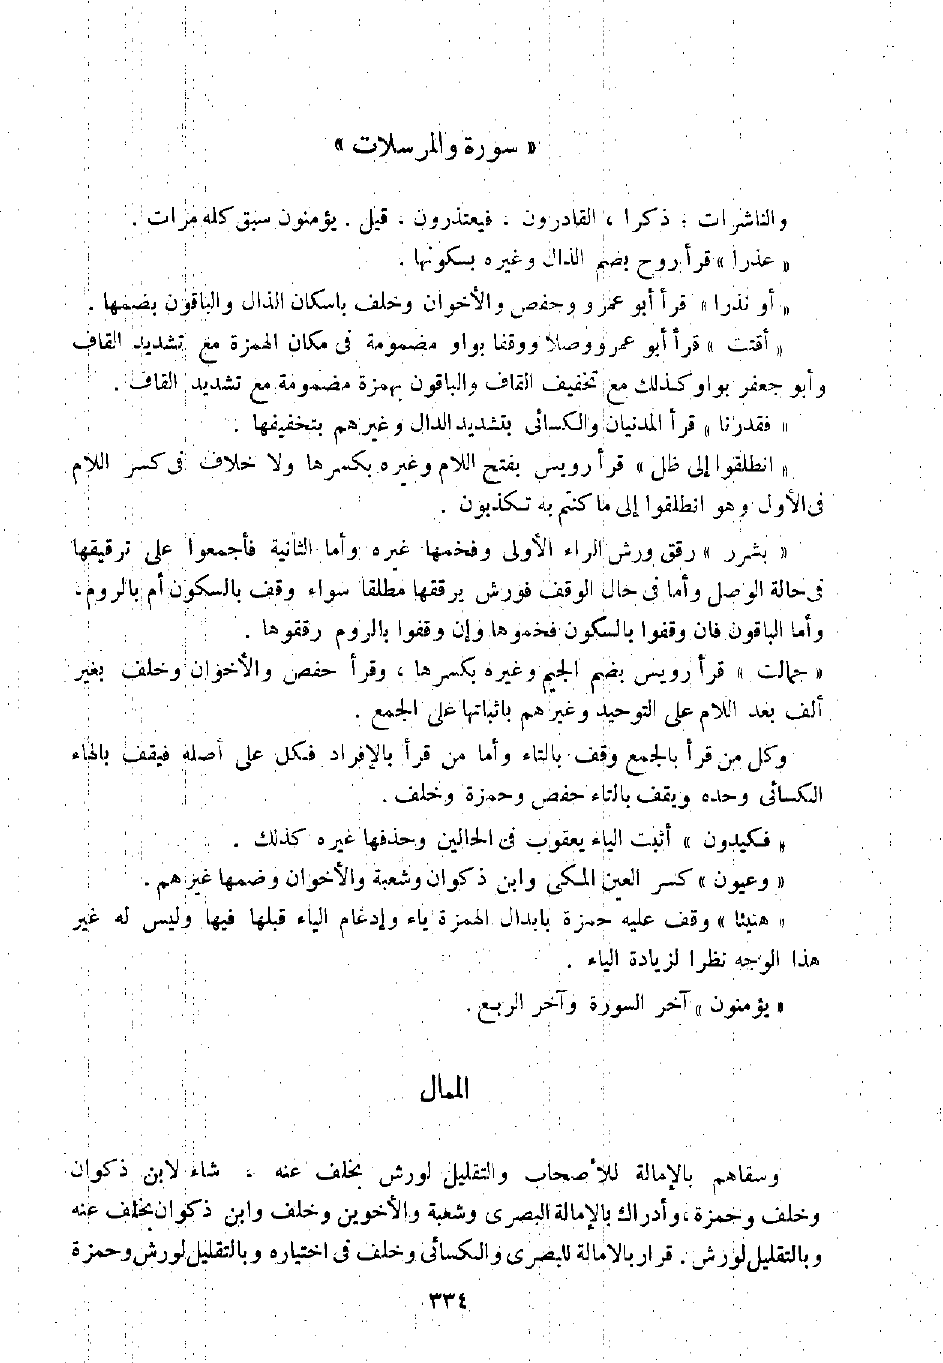 « سورة والمرسلات »
والناشرات ، ذكرا ، القادرون . فيعتذرون . قيل . يؤمنون سبق كله مرات .
« عذرا » قرأ روح بضم الذال وغيره بسكونها .
« أو نذرا » قرأ أبو عمرو وحفص والأخوان وخلف باسكان الذال والباقون بضمها .
« أقتت » قرأ أبو عمرو وصلا ووقفا بواو مضمومة فى مكان الهمزة مع تشديد القاف
وأبو جعفر بواو كذلك مع تخفيف القاف والباقون بهمزة مضمومة مع تشديد القاف .
« فقدرنا » قرأ المدنيان والكسائى بتشديد الدال وغيرهم بتخفيفها .
« انطلقوا إلى ظل » قرأ رويس بفتح اللام وغيره بكسرها ولا خلاف فى كسر اللام
فى الأول وهو انطلقوا إلى ما كنتم به تكذبون .
« بشرر » رقق ورش الراء الأولى وفخمها غيره وأما الثانية فأجمعوا على ترقيقها
فى حالة الوصل وأما فى حال الوقف فورش يرققها مطلقا سواء وقف بالسكون أم بالروم.
وأما الباقون فان وقفوا بالسكون فخموها وإن وقفوا بالروم رققوها .
« جمالت » قرأ رويس بضم الجيم وغيره بكسرها ، وقرأ حفص والأخوان وخلف بغير
ألف بعد اللام على التوحيد وغيرهم باثباتها على الجمع .
وكل من قرأ بالجمع وقف بالتاء وأما من قرأ بالإفراد فكل على أصله فيقف بالهاء
الكسائى وحده ويقف بالتاء حفص وحمزة وخلف .
« فكيدون » أثبت الياء يعقوب فى الحالين وحذفها غيره كذلك .
« وعيون » كسر العين المكى وابن ذكوان وشعبة والأخوان وضمها غيرهم .
« هنيئا » وقف عليه حمزة بابدال الهمزة ياء وإدغام الياء قبلها فيها وليس له غير
هذا الوجه نظرا لزيادة الياء .
« يؤمنون » آخر السورة وآخر الربع .
الممال
وسقاهم بالإمالة للأصحاب والتقليل لورش بخلف عنه . شاء لابن ذكوان
وخلف وحمزة ، وأدراك بالإمالة البصرى وشعبة والأخوين وخلف وابن ذكوان بخلف عنه
وبالتقليل لورش . قرار بالامالة للبصرى والكسائى وخلف فى اختياره وبالتقليل لورش وحمزة
٣٣٤